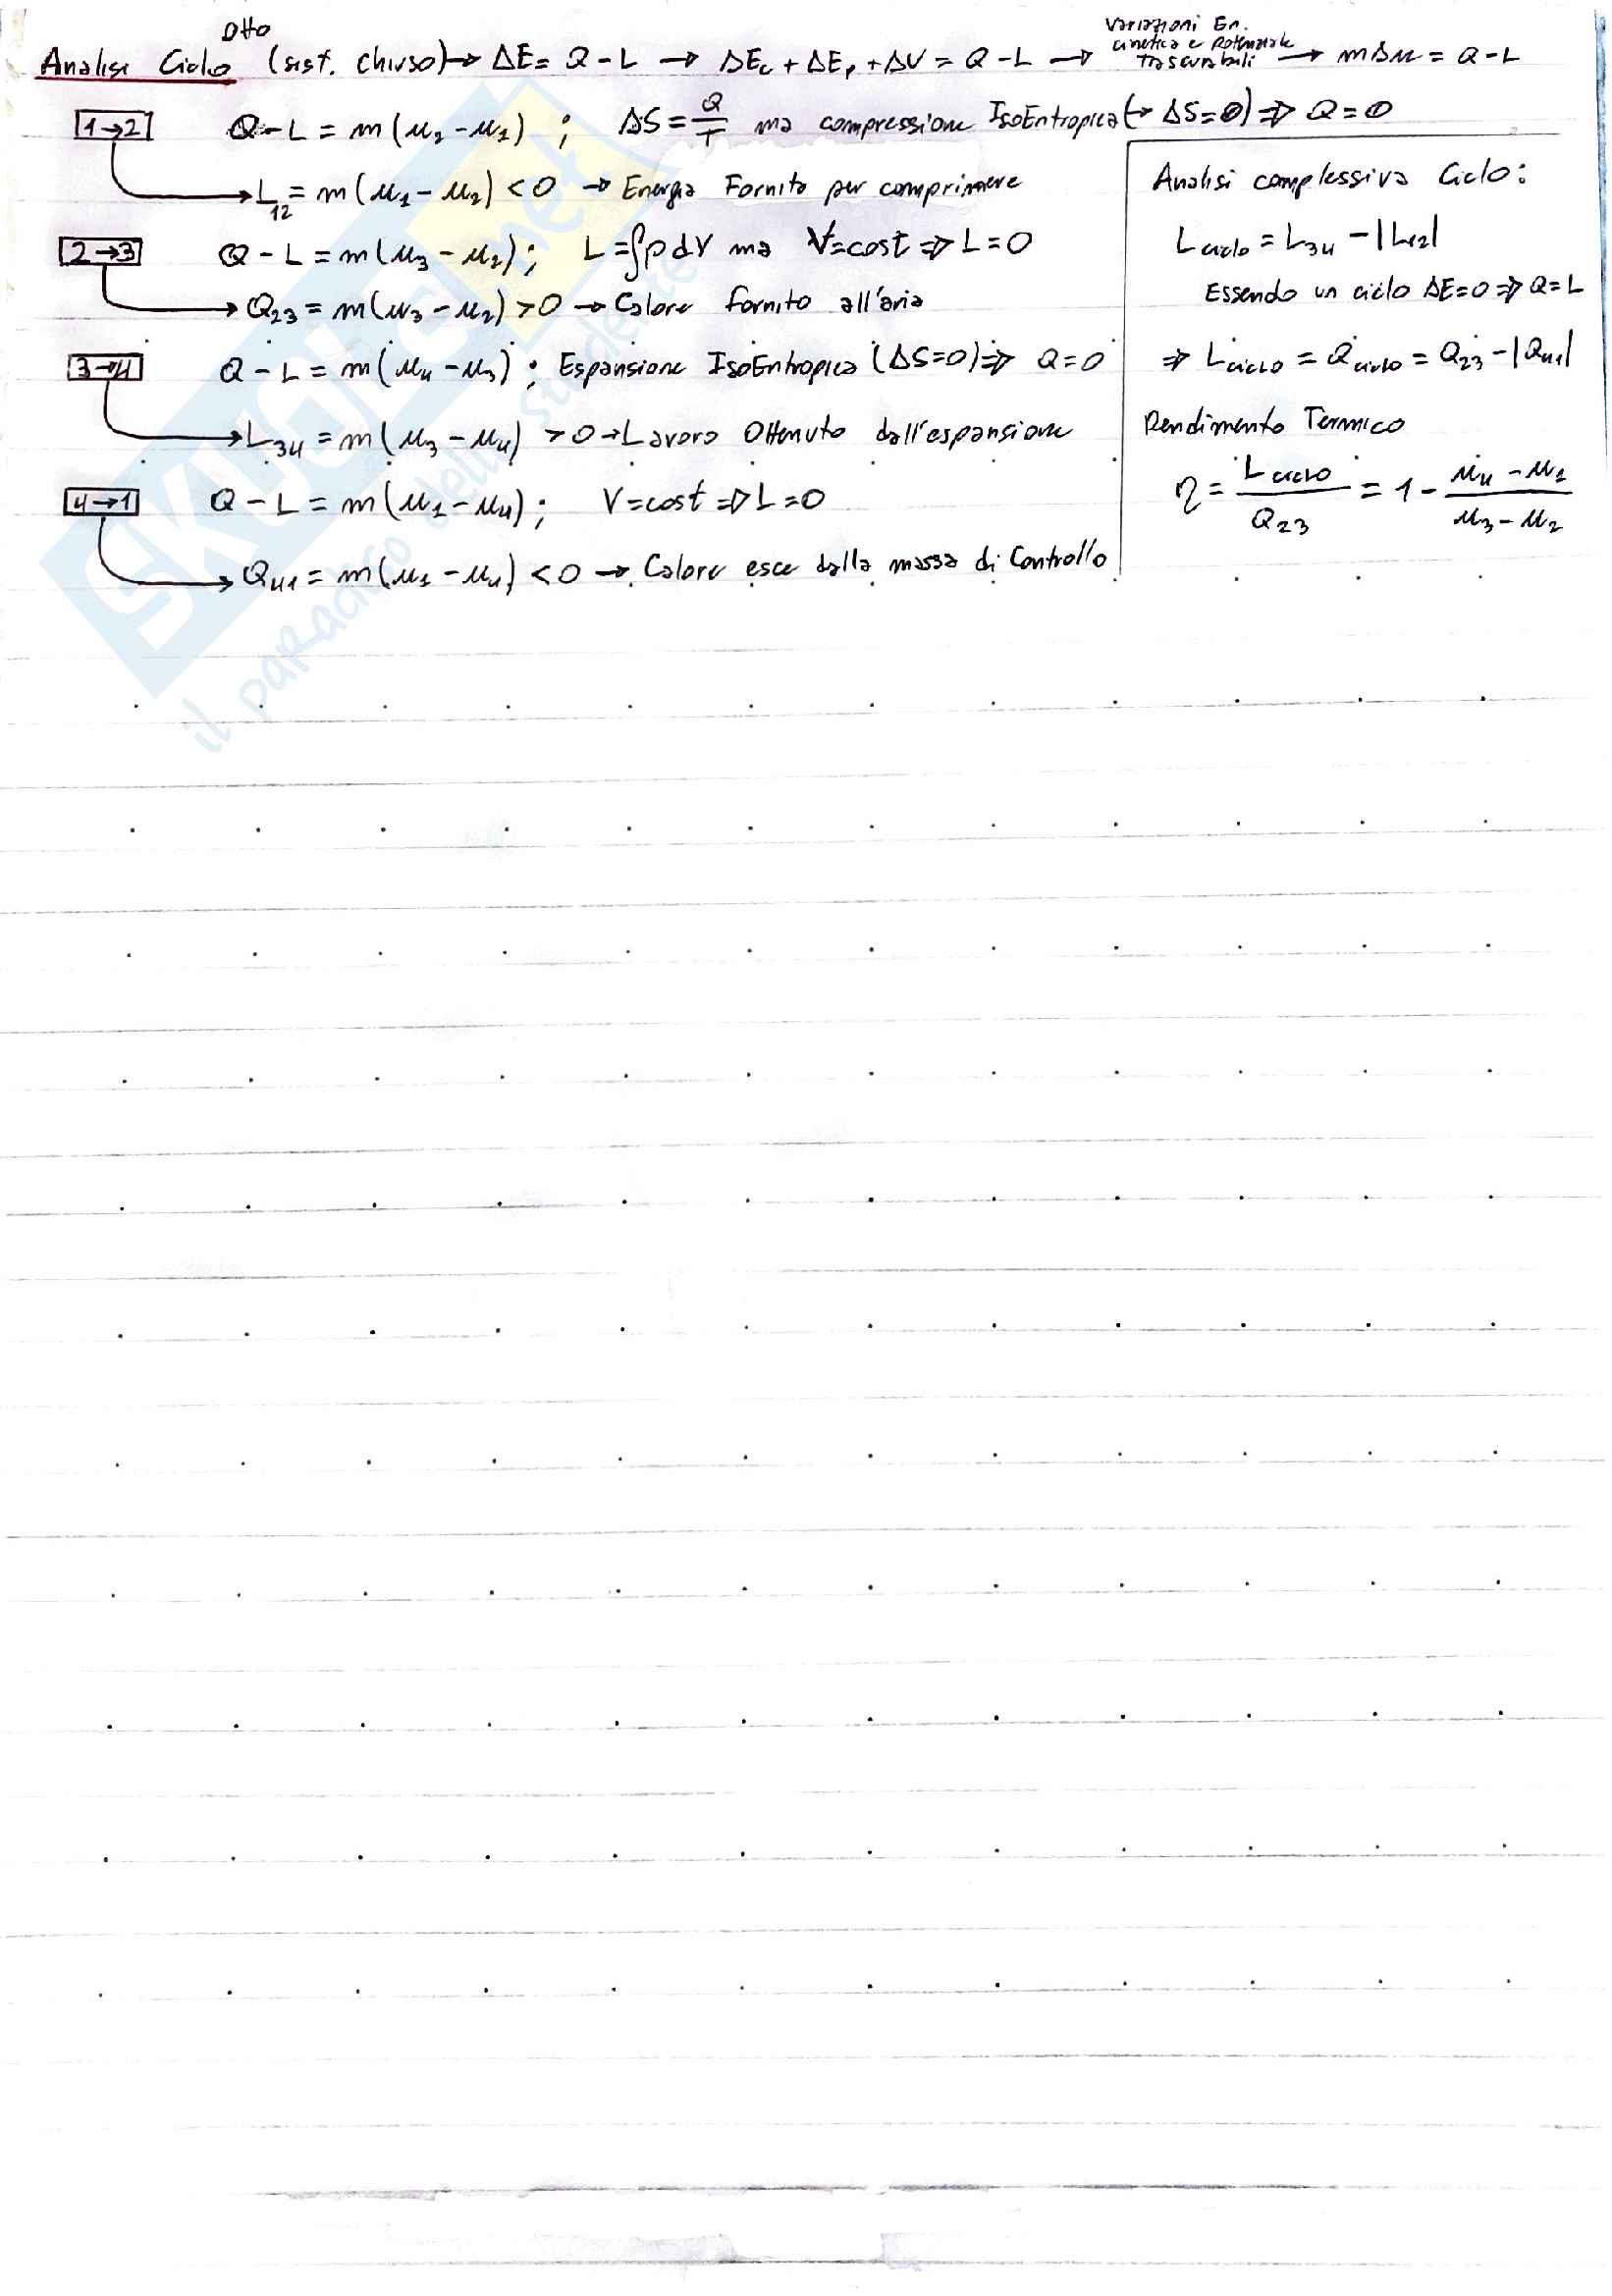 Otto
Analisi Ciclo (sist. chiuso) → ΔE = Q - L → ΔEc + ΔEp + ΔU = Q - L → variazioni En. cinetica e potenziale trascurabili → mΔu = Q - L
1→2 Q - L = m(u₂ - u₁) ; ΔS = Q/T ma compressione IsoEntropica (→ ΔS=0) ⇒ Q = 0
L₁₂ = m(u₁ - u₂) < 0 → Energia Fornita per comprimere
2→3 Q - L = m(u₃ - u₂) ; L = ∫p dV ma V=cost ⇒ L = 0
Q₂₃ = m(u₃ - u₂) > 0 → Calore fornito all'aria
3→4 Q - L = m(u₄ - u₃) ; Espansione IsoEntropica (ΔS=0) ⇒ Q = 0
L₃₄ = m(u₃ - u₄) > 0 → Lavoro Ottenuto dall'espansione
4→1 Q - L = m(u₁ - u₄) ; V=cost ⇒ L = 0
Q₄₁ = m(u₁ - u₄) < 0 → Calore esce dalla massa di Controllo
Analisi complessiva Ciclo:
L ciclo = L₃₄ - |L₁₂|
Essendo un ciclo ΔE=0 ⇒ Q=L
⇒ L ciclo = Q ciclo = Q₂₃ - |Q₄₁|
Rendimento Termico
η = L ciclo / Q₂₃ = 1 - (u₄ - u₁) / (u₃ - u₂)
SKUOLA.net
il paradiso dello studente